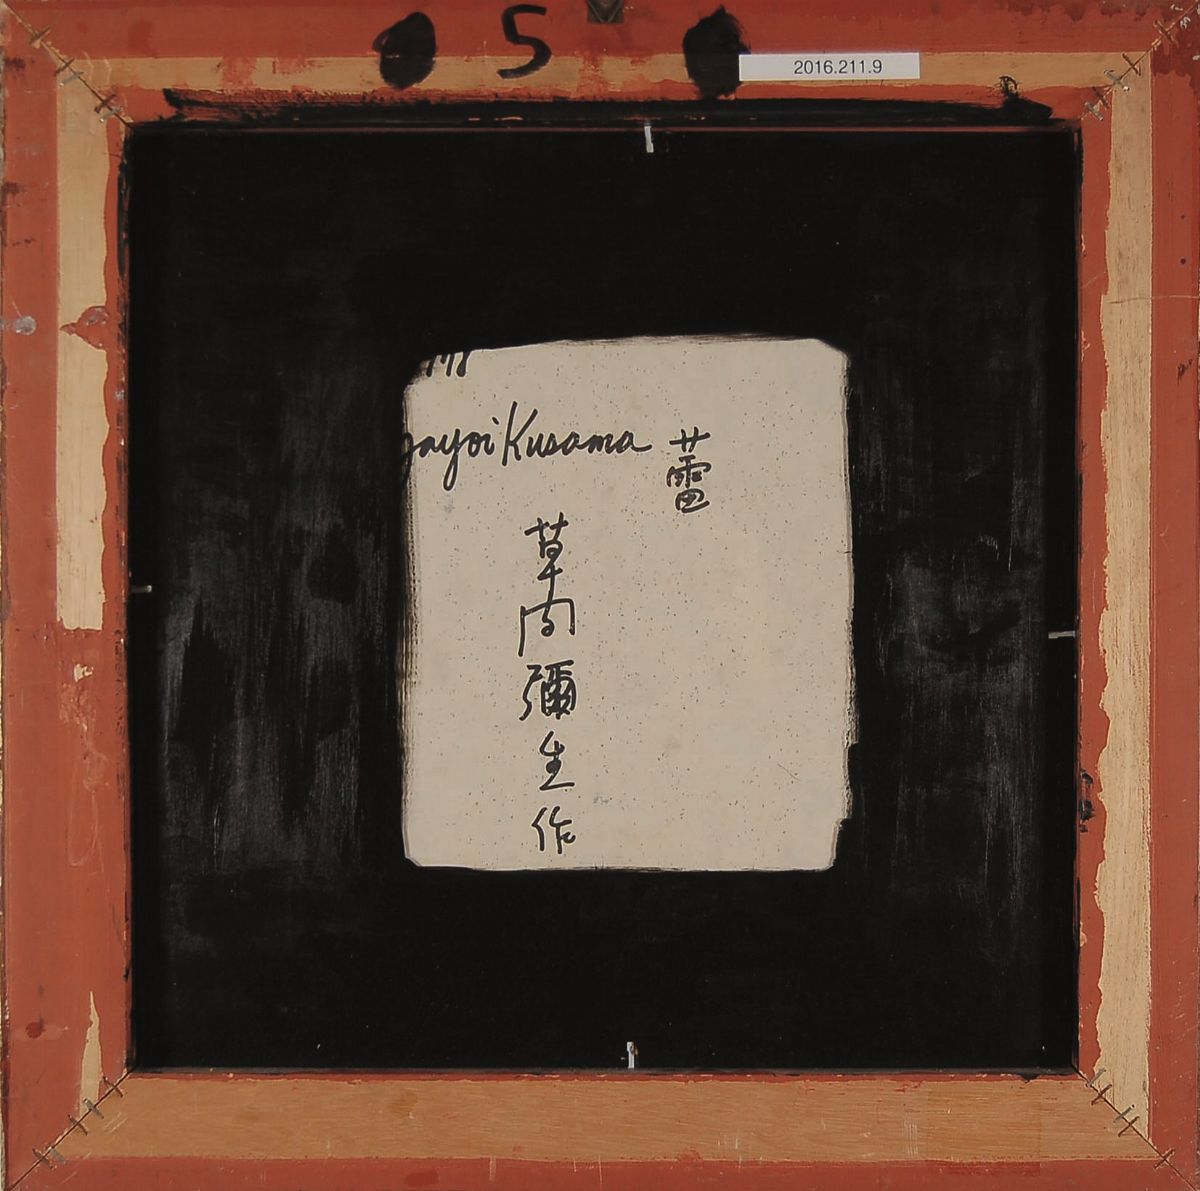 5
2016.211.9
yayoi Kusama
蕾
草間彌生作